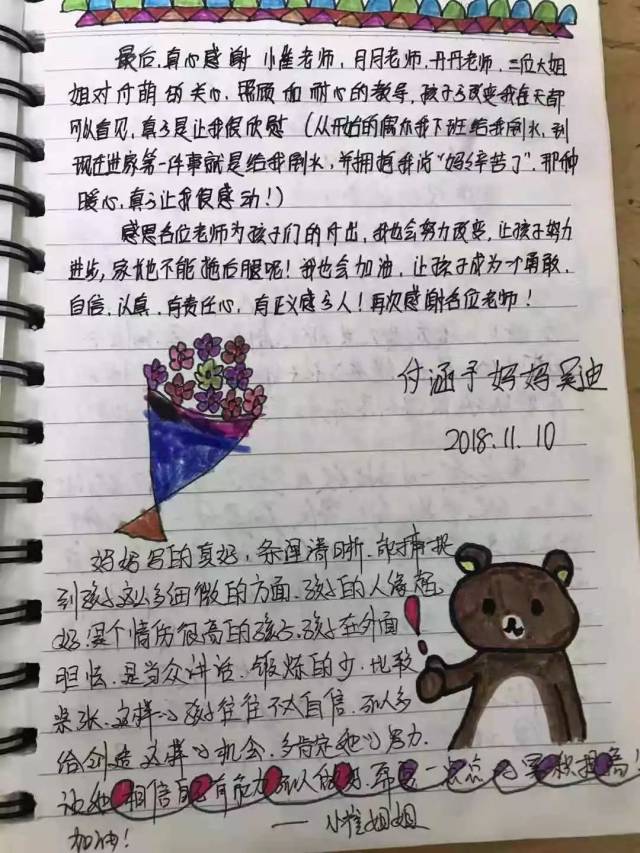 最后,真心感谢 小崔老师,月月老师,丹丹老师,三位大姐
姐对付萌的关心、照顾和耐心的教导,孩子的改变我每天都
可以看见,真的是让我很欣慰(从开始的偶尔我下班给我倒水,到
现在进家第一件事就是给我倒水,并拥抱我说“妈妈辛苦了”,那种
暖心,真的让我很感动!)
感恩各位老师为孩子们的付出,我也会努力改变,让孩子努力
进步,家长也不能拖后腿呢!我也会加油,让孩子成为一个勇敢、
自信、认真、有责任心、有正义感的人!再次感谢各位老师!
付涵予妈妈吴迪
2018.11.10
妈妈写的真好,条理清晰,能捕捉
到孩子这么多细微的方面.孩子的人缘超
好.是个情伤很高的孩子.孩子在外面
胆怯.是当众讲话.锻炼的少.比较
紧张.这样的孩子往往不太自信.可以多
给创造这样的机会.多肯定她的努力.
让她相信自己有能力可以做好.希望一点点的累积提高!
加油!
——小崔姐姐